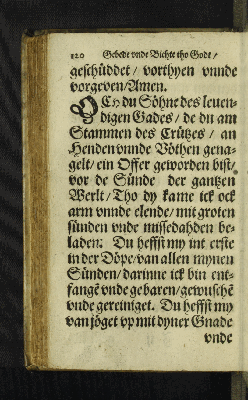 120 Gebede vnde Bichte tho Gode /
geschüddet / vorthyen vnnde
vorgeven / Amen.
OCh du Söhne des leuen-
digen Gades / de du am
Stammen des Crützes / an
Henden vnnde Vöthen gena-
gelt / ein Offer geworden bist /
vor de Sünde der gantzen
Werlt / Tho dy kame ick ock
arm vnnde elende / mit groten
sünden vnde missedahden be-
laden. Du heffst my int erste
in der Döpe / van allen mynen
Sünden / darinne ick bin ent-
fangē vnde gebaren / gewuschē
vnde gereiniget. Du heffst my
van jöget vp mit dyner Gnade
vnde